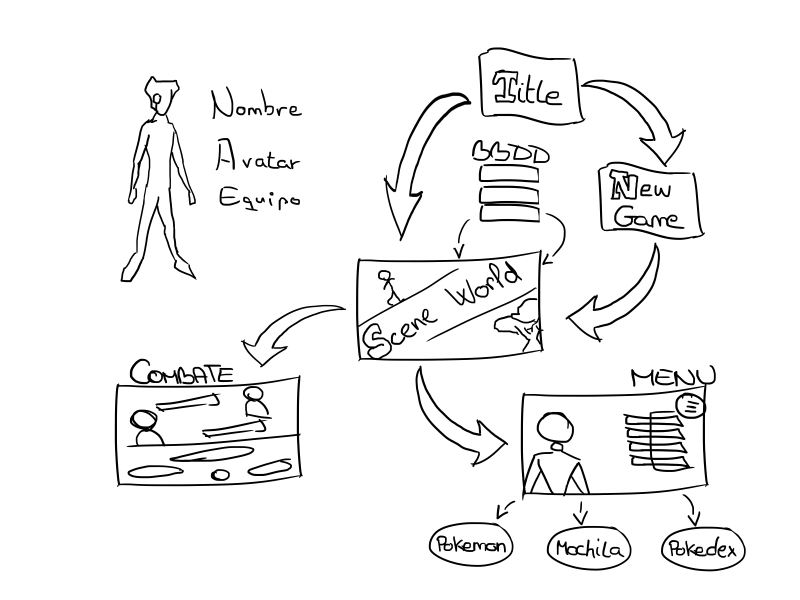 Title
Nombre
Avatar
Equipo
BBDD
New
Game
Scene World
COMBATE
MENU
Pokemon
Mochila
Pokedex